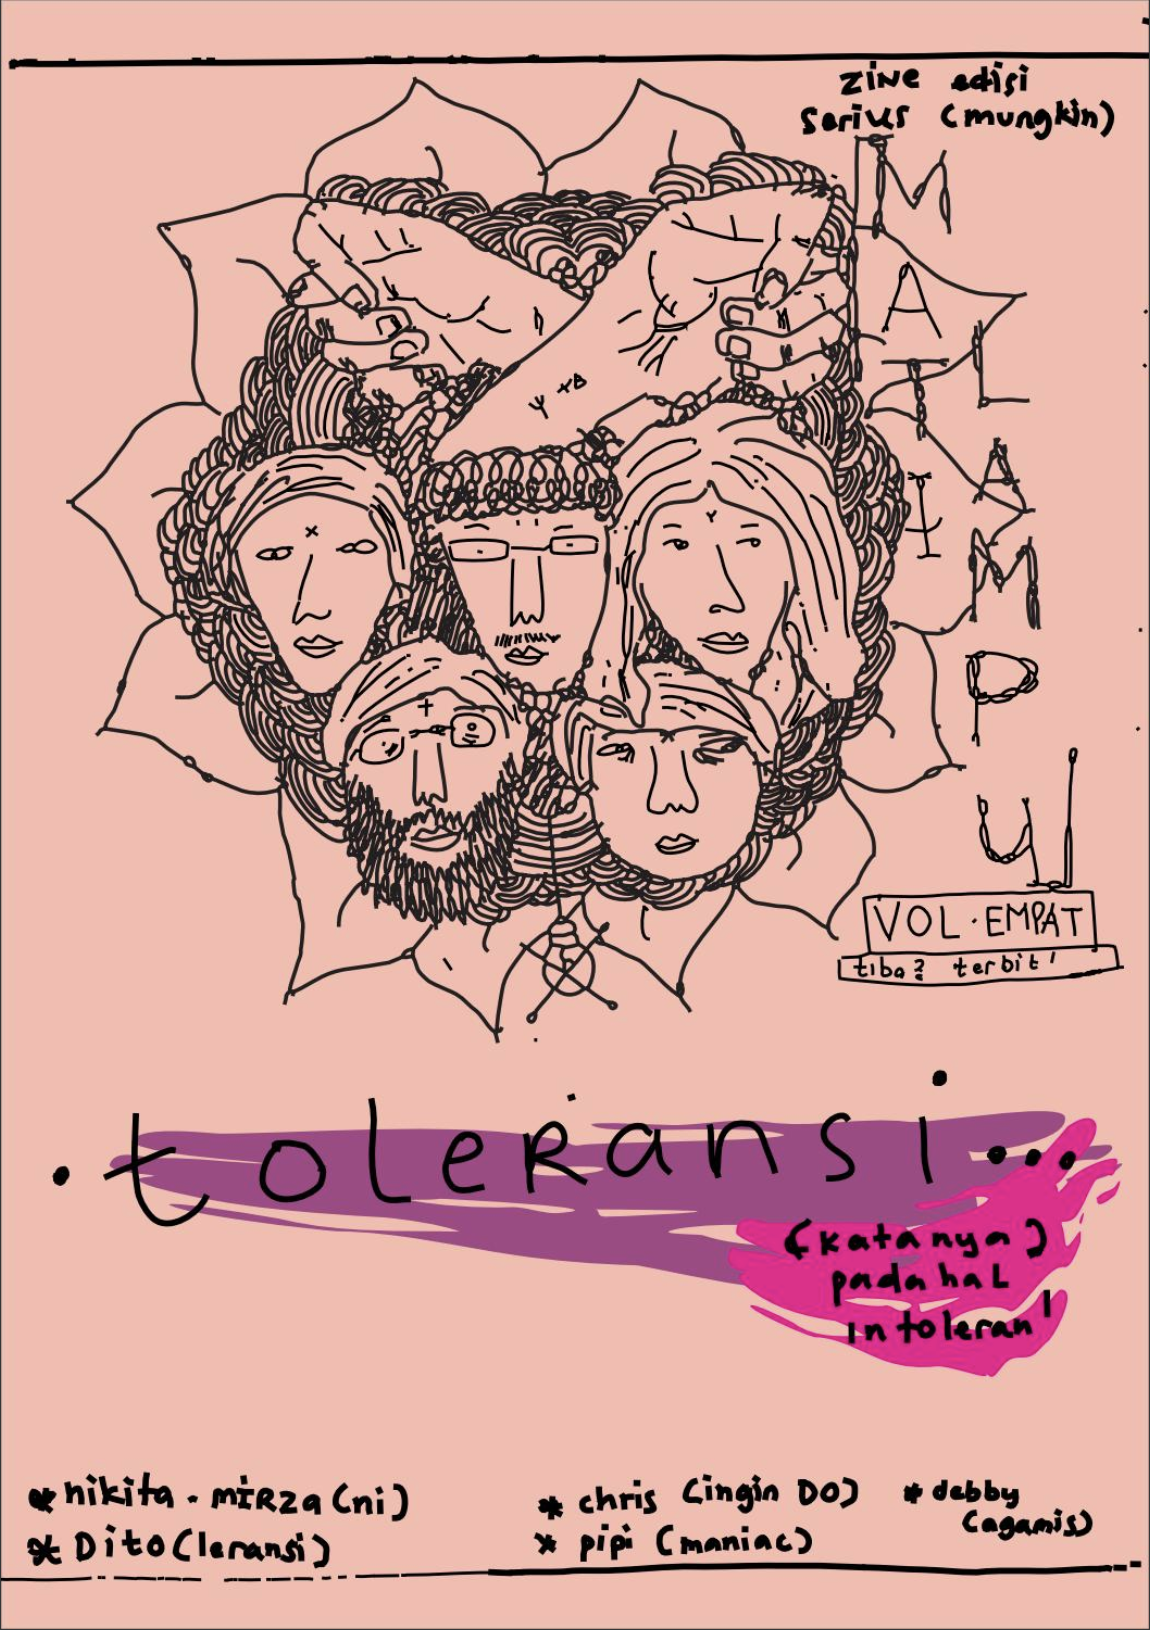 zine edisi
serius (mungkin)
MATI
LAMPU
VOL·EMPAT
tiba2 terbit!
.toleransi...
(katanya)
padahal
intoleran!
* nikita.miRza(ni)
* Dito(leransi)
* chris (ingin DO)
* pipi (maniac)
* debby
(agamis)